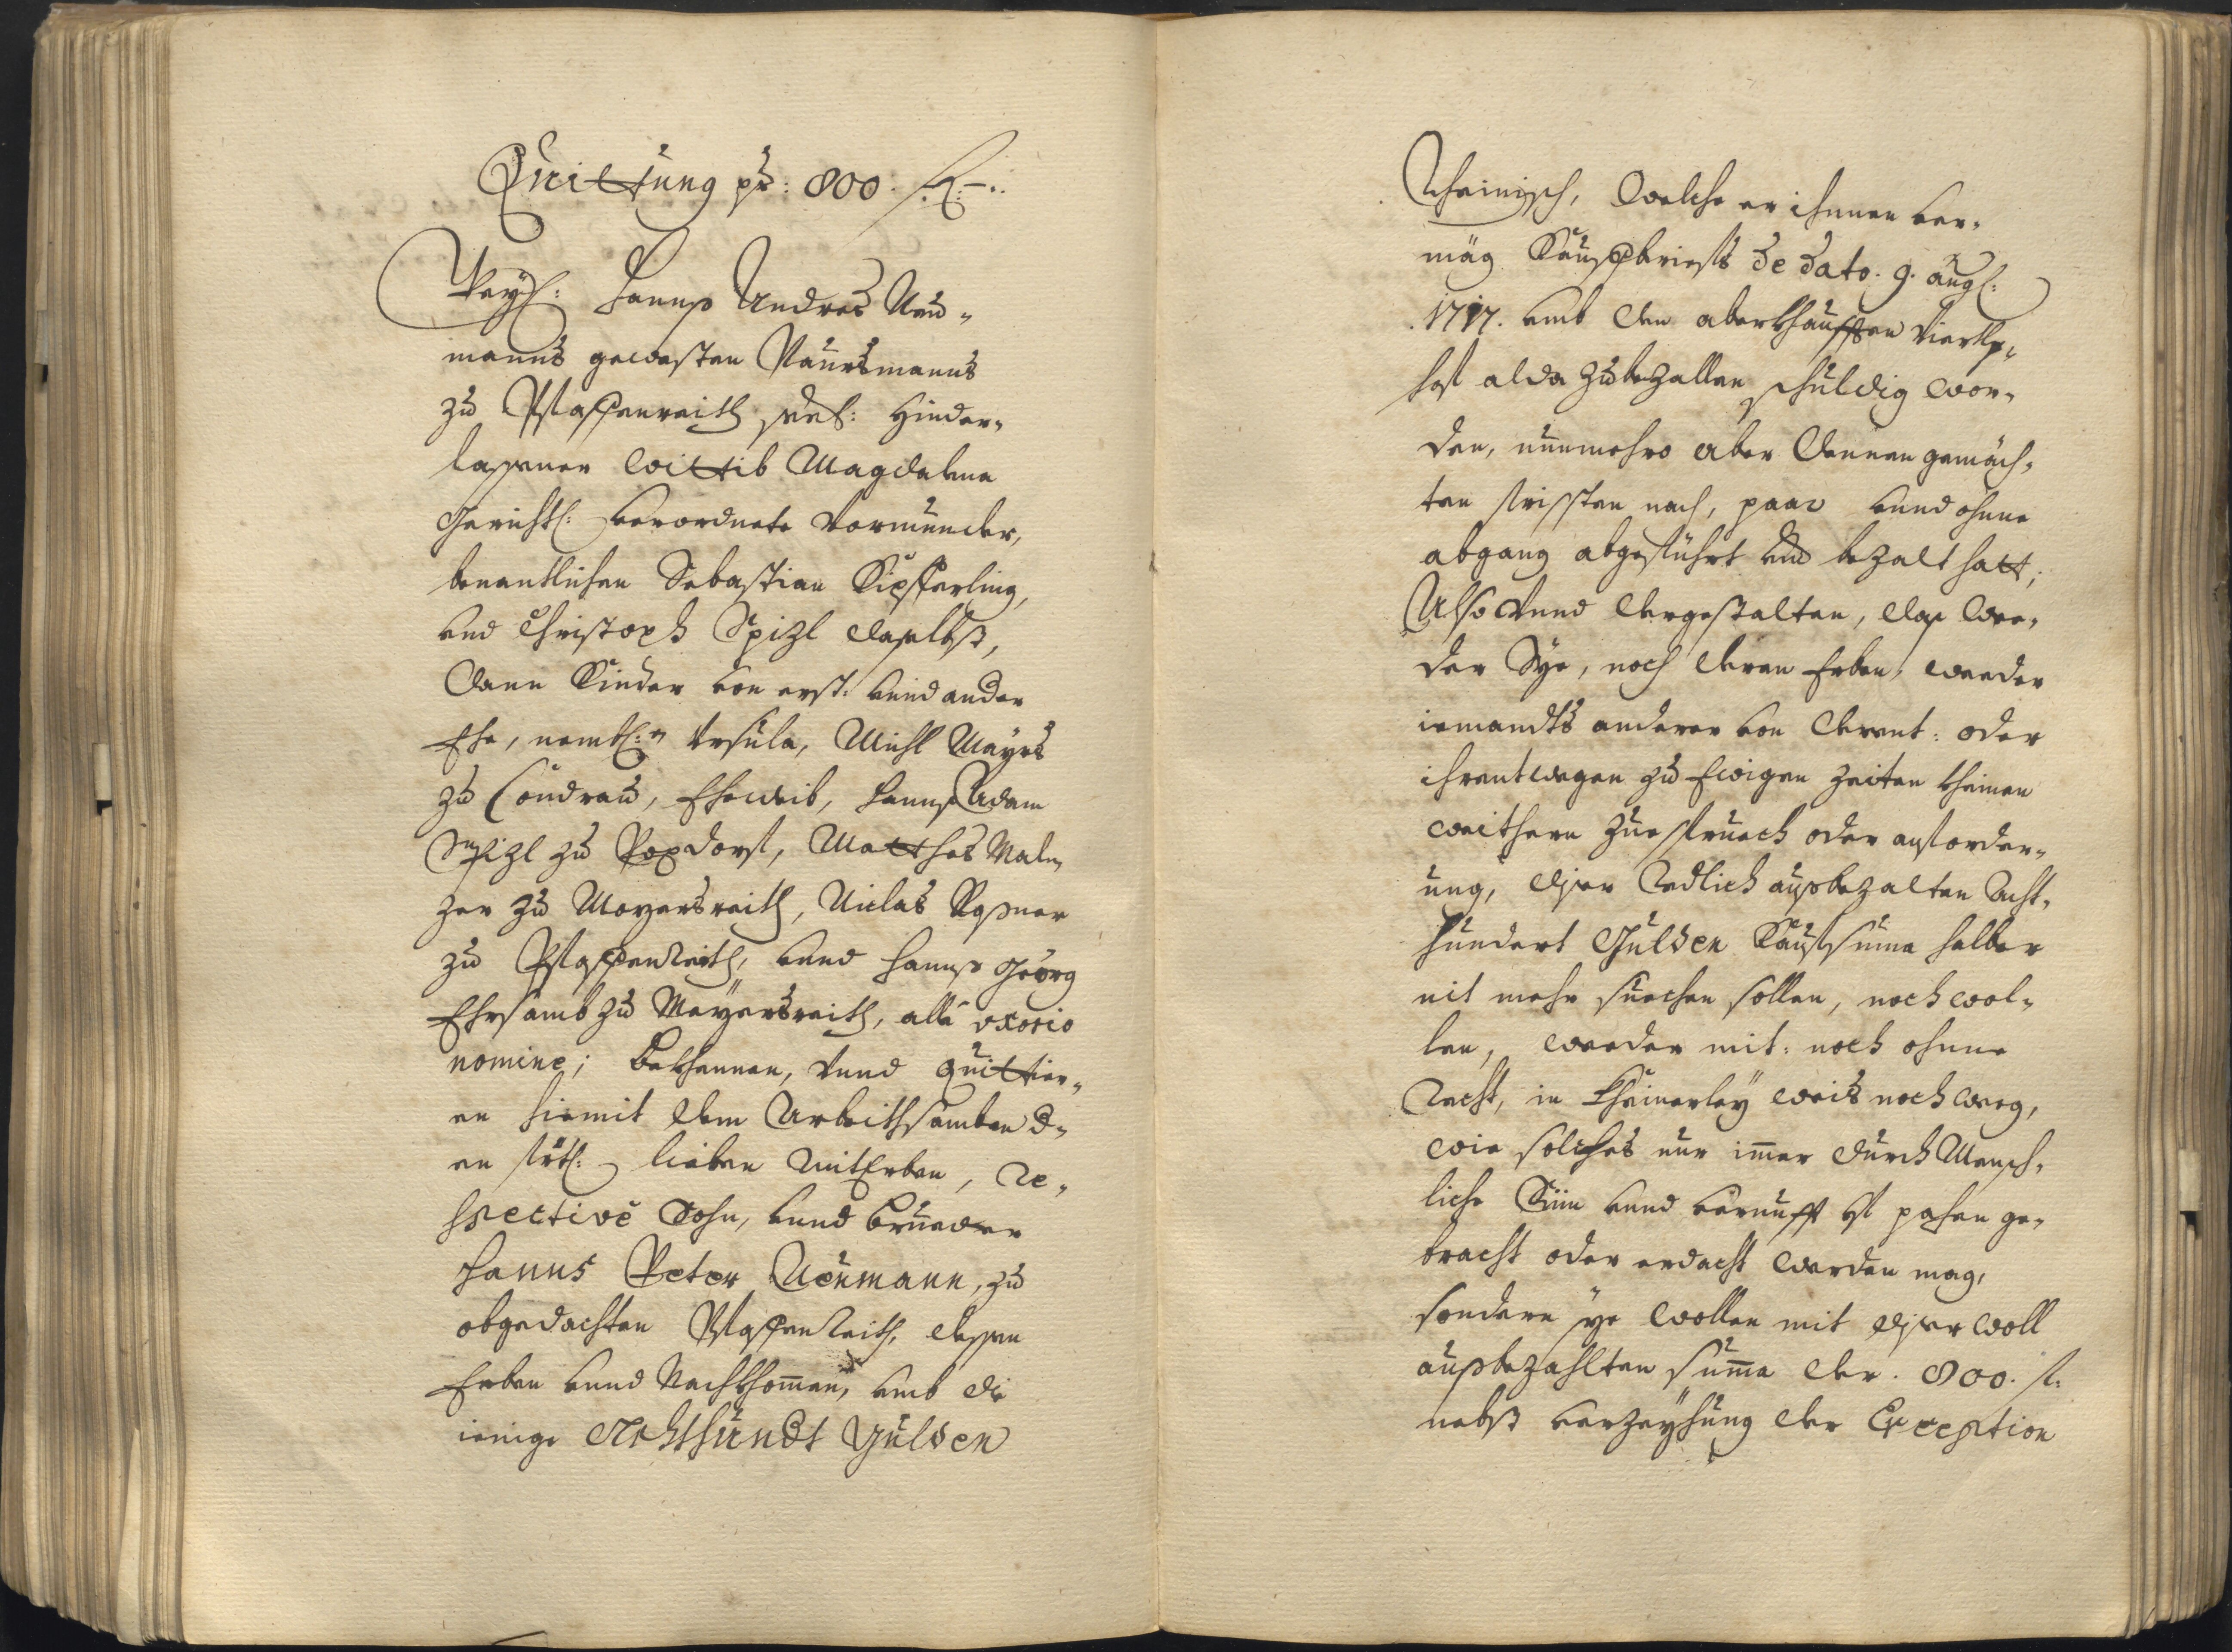 Quittung pr: 800. fl. –.
Weyl: Hannß Andreß Neu¬
manns gewesten Paursmanns
zu Pfaffenreith seel: hinder¬
lassener Wittib Magdalena
Gerichtl: verordnete Vormünder,
benantlichen Sebastian Kipfferling,
und Christoph Spizl daselbst,
dann Kinder von erst: unnd ander
Ehe, nembl:n Ursula, Michl Mayrs
zu Condrau, Eheweib, Hannß Adam
Spizl zu Poxdorf, Matthes Mal¬
zer zu Mayersreith, Niclas Roßner
zu Pfaffenreith, unnd Hannß Georg
Ehrsamb zu Mayersreith, alle uxorio
nomine; Bekhennen, vnnd quittier¬
en hiemit dem Arbeithsamben d¬
en lieben miterben, re¬
spectivè Sohn, unnd Brueder
Hanns Peter Neumann, zu
obgedachten Pfaffenreith, dessen
Erben unnd Nachkhommen, umb die
ienige Achthundt Gulden
Rheinisch, Welche er ihnnen ver¬
mög Kauffbriefs de dato. 9. aug:
1717. umb den aberkhaufften Viertl¬
hof alda zubezallen schuldig wor¬
den, nunmehro aber denen gemach¬
ten fristen nach, paar unnd ohnne
abgang abgeführt und bezalt hatt;
Also vnnd dergestalten, das we¬
der Sye, noch deren Erben, weeder
iemandts anderer von derent: oder
ihrentwegen zu Ewigen zeiten kheinen
weithern zuespruech oder anforder¬
ung, diser Redlich außbezalten Acht¬
hundert Gulden Kaufsumma halber
nit mehr suechen sollen, noch wol¬
len, weeder mit: noch ohnne
Recht, in kheinerley weis noch weeg,
wie solches nur immer durch Mensch¬
liche Sinn unnd vernunfft ge¬
bracht oder erdacht werden mag,
sondern sye wollen mit diser woll
außbezahlten summa der. 800. fl:
nebst verzeyhung der Exception